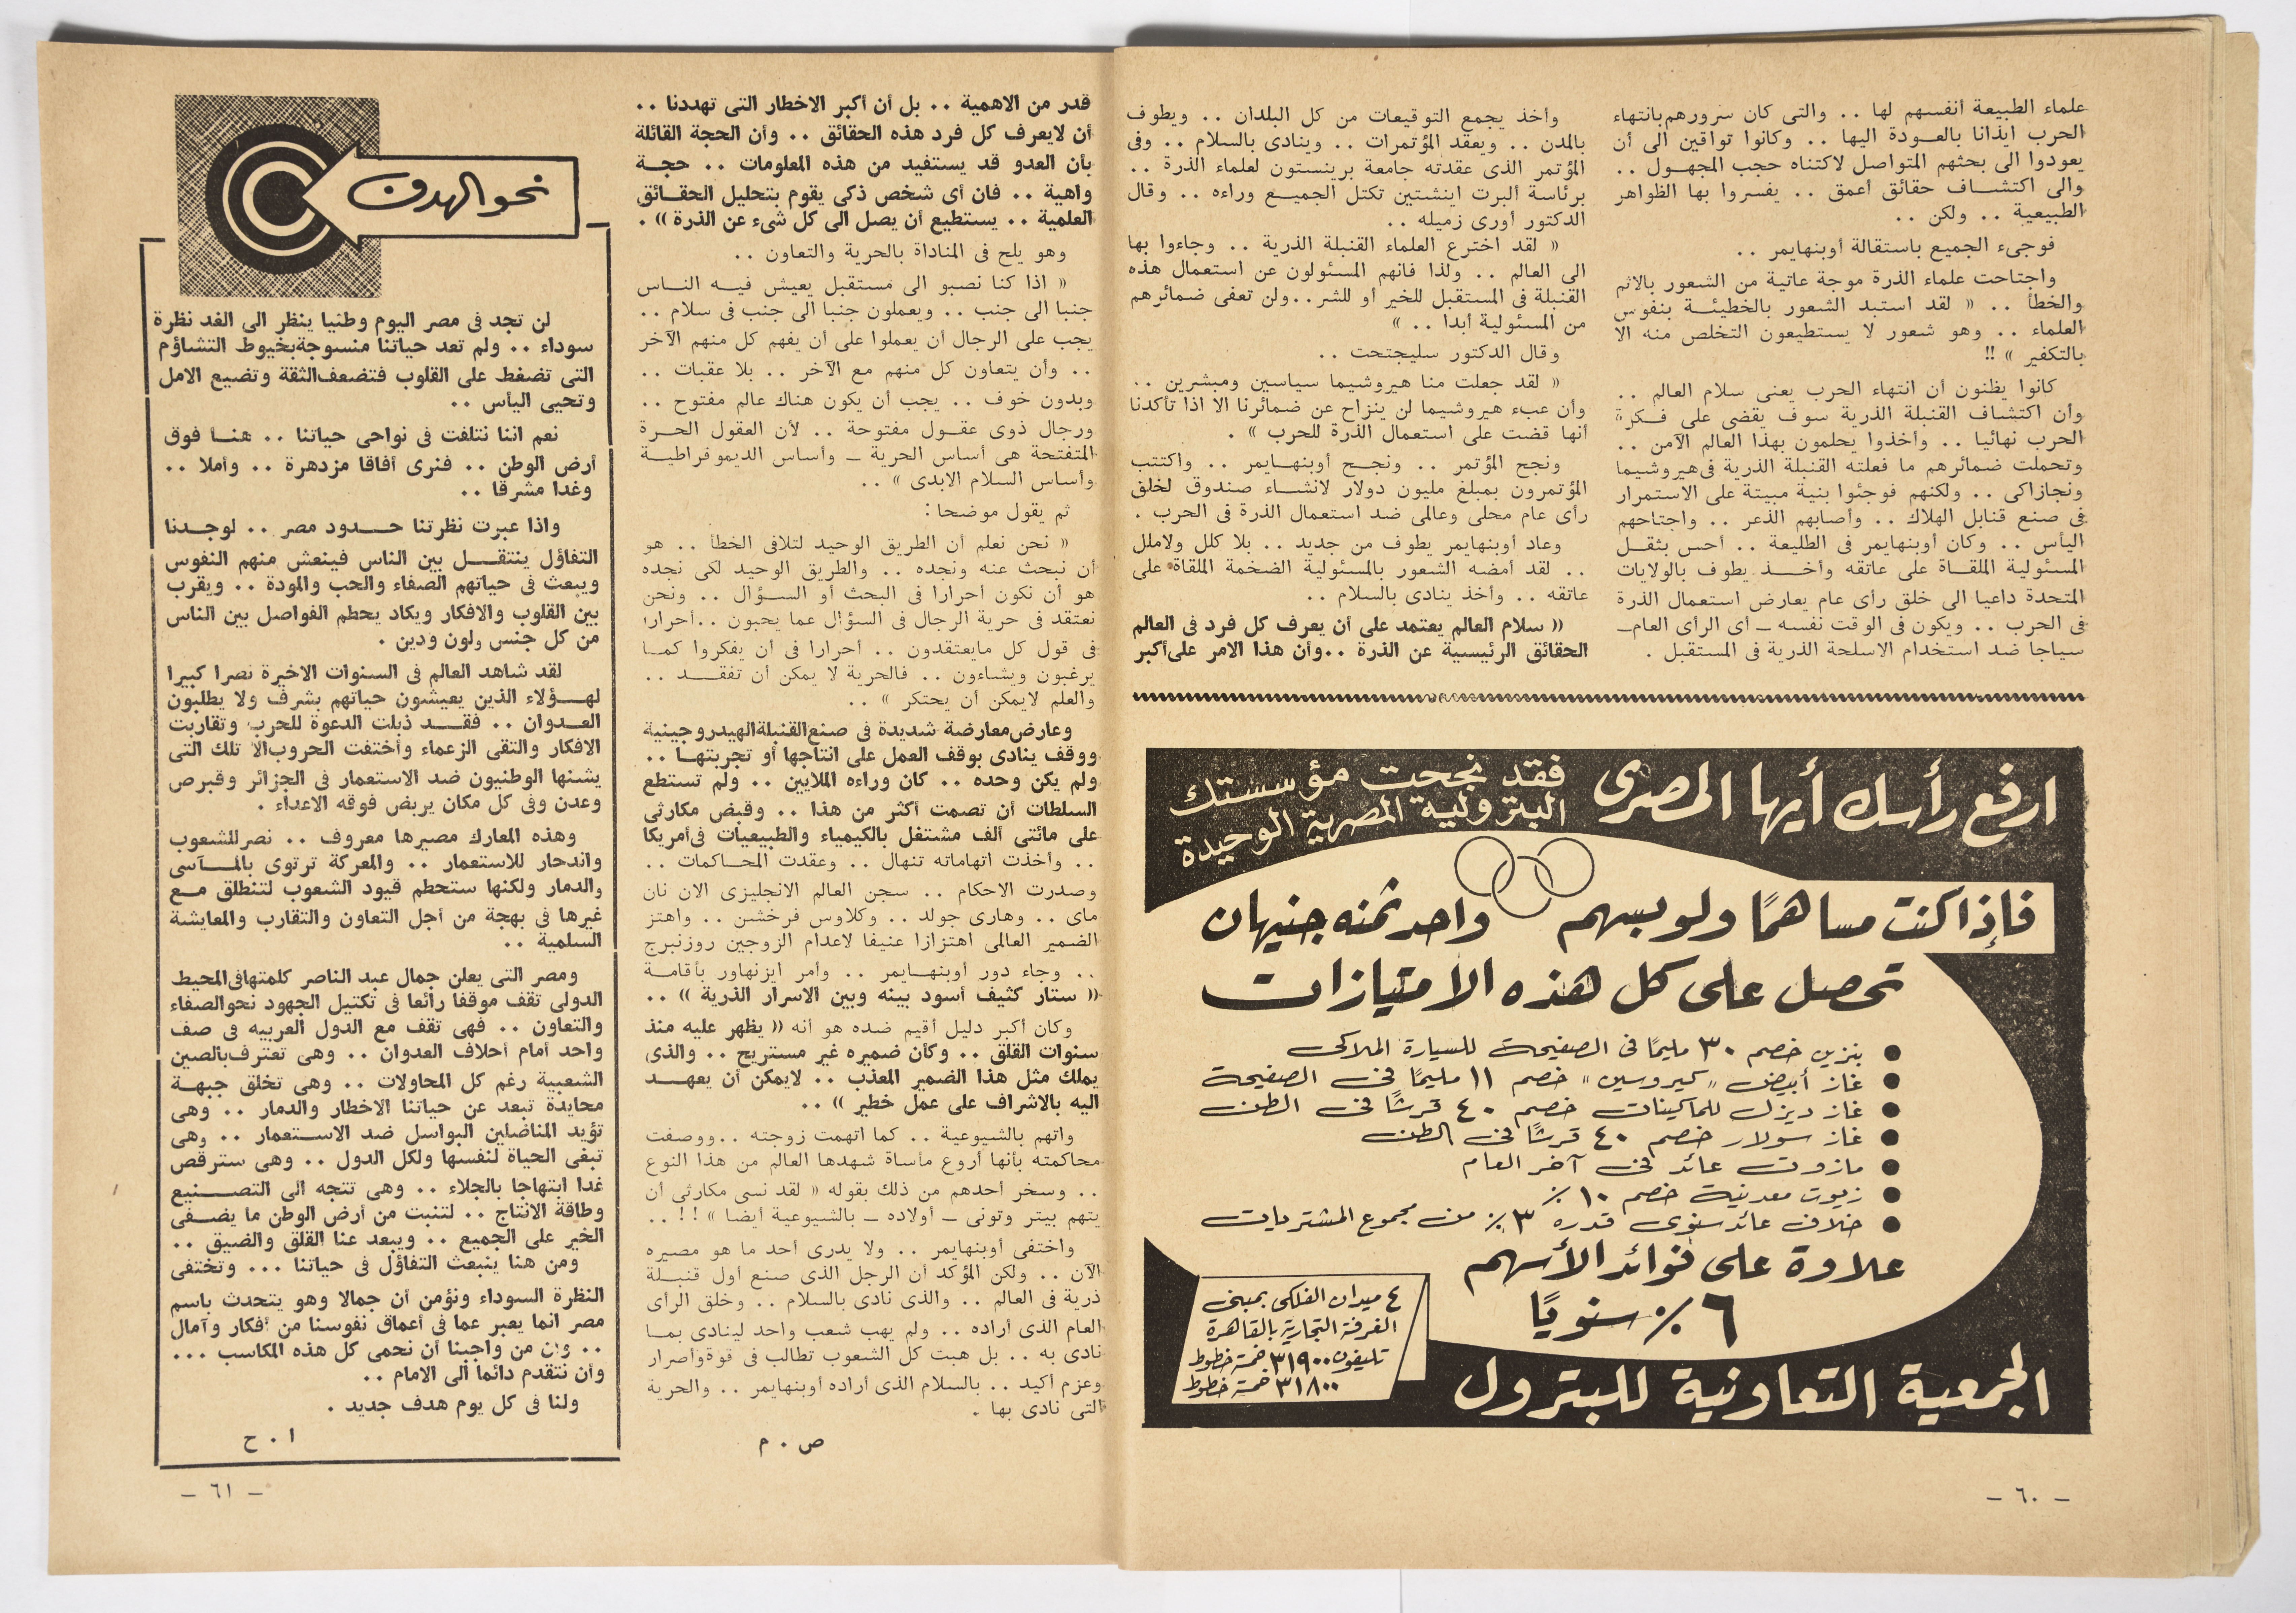 علماء الطبيعة أنفسهم لها .. والتى كان سرورهم بانتهاء
الحرب ايذانا بالعودة اليها .. وكانوا تواقين الى أن
يعودوا الى بحثهم المتواصل لاكتناه حجب المجهول ..
والى اكتشاف حقائق أعمق .. يفسروا بها الظواهر
الطبيعية .. ولكن ..
فوجىء الجميع باستقالة أوبنهايمر ..
واجتاحت علماء الذرة موجة عاتية من الشعور بالاثم
والخطأ .. « لقد استبد الشعور بالخطيئة بنفوس
العلماء .. وهو شعور لا يستطيعون التخلص منه الا
بالتكفير » !!
كانوا يظنون أن انتهاء الحرب يعنى سلام العالم ..
وأن اكتشاف القنبلة الذرية سوف يقضى على فكرة
الحرب نهائيا .. وأخذوا يحلمون بهذا العالم الآمن ..
وتحملت ضمائرهم ما فعلته القنبلة الذرية فى هيروشيما
ونجازاكى .. ولكنهم فوجئوا بنية مبيتة على الاستمرار
فى صنع قنابل الهلاك .. وأصابهم الذعر .. واجتاحهم
اليأس .. وكان أوبنهايمر فى الطليعة .. أحس بثقل
المسئولية الملقاة على عاتقه وأخذ يطوف بالولايات
المتحدة داعيا الى خلق رأى عام يعارض استعمال الذرة
فى الحرب .. ويكون فى الوقت نفسه ـ أى الرأى العام ـ
سياجا ضد استخدام الاسلحة الذرية فى المستقبل .
وأخذ يجمع التوقيعات من كل البلدان .. ويطوف
بالمدن .. ويعقد المؤتمرات .. وينادى بالسلام .. وفى
المؤتمر الذى عقدته جامعة برينستون لعلماء الذرة ..
برئاسة ألبرت اينشتين تكتل الجميع وراءه .. وقال
الدكتور أورى زميله ..
« لقد اخترع العلماء القنبلة الذرية .. وجاءوا بها
الى العالم .. ولذا فانهم المسئولون عن استعمال هذه
القنبلة فى المستقبل للخير أو للشر .. ولن تعفى ضمائرهم
من المسئولية أبدا .. »
وقال الدكتور سليجتحت ..
« لقد جعلت منا هيروشيما سياسين ومبشرين ..
وأن عبء هيروشيما لن ينزاح عن ضمائرنا الا اذا تأكدنا
أنها قضت على استعمال الذرة للحرب » .
ونجح المؤتمر .. ونجح أوبنهايمر .. واكتتب
المؤتمرون بمبلغ مليون دولار لانشاء صندوق لخلق
رأى عام محلى وعالمى ضد استعمال الذرة فى الحرب .
وعاد أوبنهايمر يطوف من جديد .. بلا كلل ولاملل
.. لقد أمضه الشعور بالمسئولية الضخمة الملقاة على
عاتقه .. وأخذ ينادى بالسلام ..
« سلام العالم يعتمد على أن يعرف كل فرد فى العالم
الحقائق الرئيسية عن الذرة .. وأن هذا الامر على أكبر
ارفع رأسك أيها المصرى
فقد نجحت مؤسستك
البترولية المصرية الوحيدة
فإذا كنت مساهمًا ولو بسهم واحد ثمنه جنيهان
تحصل على كل هذه الامتيازات
● بنزين خصم ٣٠ مليمًا فى الصفيحة للسيارة الملاكى
● غاز أبيض "كيروسين" خصم ١١ مليمًا فى الصفيحة
● غاز ديزل للماكينات خصم ٤٠ قرشًا فى الطن
● غاز سولار خصم ٤٠ قرشًا فى الطن
● مازوت عائد فى آخر العام
● زيوت معدنية خصم ١٠٪
● خلاف عائد سنوى قدره ٣٪ من مجموع المشتريات
علاوة على فوائد الأسهم
٦٪ سنويًا
٤ ميدان الفلكى بمبنى
الغرفة التجارية بالقاهرة
تليفون ٣١٩٠٠ خمسة خطوط
٣١٨٠٠ خمسة خطوط
الجمعية التعاونية للبترول
ـ ٦٠ ـ
قدر من الاهمية .. بل أن أكبر الاخطار التى تهددنا ..
أن لايعرف كل فرد هذه الحقائق .. وأن الحجة القائلة
بأن العدو قد يستفيد من هذه المعلومات .. حجة
واهية .. فان أى شخص ذكى يقوم بتحليل الحقائق
العلمية .. يستطيع أن يصل الى كل شىء عن الذرة » .
وهو يلح فى المناداة بالحرية والتعاون ..
« اذا كنا نصبو الى مستقبل يعيش فيه الناس
جنبا الى جنب .. ويعملون جنبا الى جنب فى سلام ..
يجب على الرجال أن يعملوا على أن يفهم كل منهم الآخر
.. وأن يتعاون كل منهم مع الآخر .. بلا عقبات ..
وبدون خوف .. يجب أن يكون هناك عالم مفتوح ..
ورجال ذوى عقول مفتوحة .. لأن العقول الحرة
المتفتحة هى أساس الحرية ـ وأساس الديموقراطية
وأساس السلام الابدى » ..
ثم يقول موضحا :
« نحن نعلم أن الطريق الوحيد لتلافى الخطأ .. هو
أن نبحث عنه ونجده .. والطريق الوحيد لكى نجده
هو أن نكون أحرارا فى البحث أو السؤال .. ونحن
نعتقد فى حرية الرجال فى السؤال عما يحبون .. أحرارا
فى قول كل مايعتقدون .. أحرارا فى أن يفكروا كما
يرغبون ويشاءون .. فالحرية لا يمكن أن تفقد ..
والعلم لايمكن أن يحتكر » ..
وعارض معارضة شديدة فى صنع القنبلة الهيدروجينية
ووقف ينادى بوقف العمل على انتاجها أو تجربتها ..
ولم يكن وحده .. كان وراءه الملايين .. ولم تستطع
السلطات أن تصمت أكثر من هذا .. وقبض مكارثى
على مائتى ألف مشتغل بالكيمياء والطبيعيات فى أمريكا
.. وأخذت اتهاماته تنهال .. وعقدت المحاكمات ..
وصدرت الاحكام .. سجن العالم الانجليزى الان نان
ماى .. وهارى جولد .. وكلاوس فرخشن .. واهتز
الضمير العالمى اهتزازا عنيفا لاعدام الزوجين روزنبرج
.. وجاء دور أوبنهايمر .. وأمر ايزنهاور بأقامة
« ستار كثيف أسود بينه وبين الاسرار الذرية » ..
وكان أكبر دليل أقيم ضده هو أنه « يظهر عليه منذ
سنوات القلق .. وكأن ضميره غير مستريح .. والذى
يملك مثل هذا الضمير المعذب .. لايمكن أن يعهد
اليه بالاشراف على عمل خطير » ..
واتهم بالشيوعية .. كما اتهمت زوجته .. ووصفت
محاكمته بأنها أروع مأساة شهدها العالم من هذا النوع
.. وسخر أحدهم من ذلك بقوله « لقد نسى مكارثى أن
يتهم بيتر وتونى ـ أولاده ـ بالشيوعية أيضا » !! ..
واختفى أوبنهايمر .. ولا يدرى أحد ما هو مصيره
الآن .. ولكن المؤكد أن الرجل الذى صنع أول قنبلة
ذرية فى العالم .. والذى نادى بالسلام .. وخلق الرأى
العام الذى أراده .. ولم يهب شعب واحد لينادى بما
نادى به .. بل هبت كل الشعوب تطالب فى قوة وأصرار
وعزم أكيد .. بالسلام الذى أراده أوبنهايمر .. والحرية
التى نادى بها .
ص . م
نحو الهدف
لن تجد فى مصر اليوم وطنيا ينظر الى الغد نظرة
سوداء .. ولم تعد حياتنا منسوجة بخيوط التشاؤم
التى تضغط على القلوب فتضعف الثقة وتضيع الامل
وتحيى اليأس ..
نعم اننا نتلفت فى نواحى حياتنا .. هنا فوق
أرض الوطن .. فنرى أفاقا مزدهرة .. وأملا ..
وغدا مشرقا ..
واذا عبرت نظرتنا حدود مصر .. لوجدنا
التفاؤل ينتقل بين الناس فينعش منهم النفوس
ويبعث فى حياتهم الصفاء والحب والمودة .. ويقرب
بين القلوب والافكار ويكاد يحطم الفواصل بين الناس
من كل جنس ولون ودين .
لقد شاهد العالم فى السنوات الاخيرة نصرا كبيرا
لهؤلاء الذين يعيشون حياتهم بشرف ولا يطلبون
العدوان .. فقد ذبلت الدعوة للحرب وتقاربت
الافكار والتقى الزعماء وأختفت الحروب الا تلك التى
يشنها الوطنيون ضد الاستعمار فى الجزائر وقبرص
وعدن وفى كل مكان يربض فوقه الاعداء .
وهذه المعارك مصيرها معروف .. نصر للشعوب
واندحار للاستعمار .. والمعركة ترتوى بالمآسى
والدمار ولكنها ستحطم قيود الشعوب لتنطلق مع
غيرها فى بهجة من أجل التعاون والتقارب والمعايشة
السلمية ..
ومصر التى يعلن جمال عبد الناصر كلمتها فى المحيط
الدولى تقف موقفا رائعا فى تكتيل الجهود نحو الصفاء
والتعاون .. فهى تقف مع الدول العربيه فى صف
واحد أمام أحلاف العدوان .. وهى تعترف بالصين
الشعبية رغم كل المحاولات .. وهى تخلق جبهة
محايدة تبعد عن حياتنا الاخطار والدمار .. وهى
تؤيد المناضلين البواسل ضد الاستعمار .. وهى
تبغى الحياة لنفسها ولكل الدول .. وهى سترقص
غدا ابتهاجا بالجلاء .. وهى تتجه الى التصنيع
وطاقة الانتاج .. لتنبت من أرض الوطن ما يضفى
الخير على الجميع .. ويبعد عنا القلق والضيق ..
ومن هنا ينبعث التفاؤل فى حياتنا ... وتختفى
النظرة السوداء ونؤمن أن جمالا وهو يتحدث باسم
مصر انما يعبر عما فى أعماق نفوسنا من أفكار وآمال
.. وان من واجبنا أن نحمى كل هذه المكاسب ...
وأن نتقدم دائما الى الامام ..
ولنا فى كل يوم هدف جديد .
ا . ح
ـ ٦١ ـ